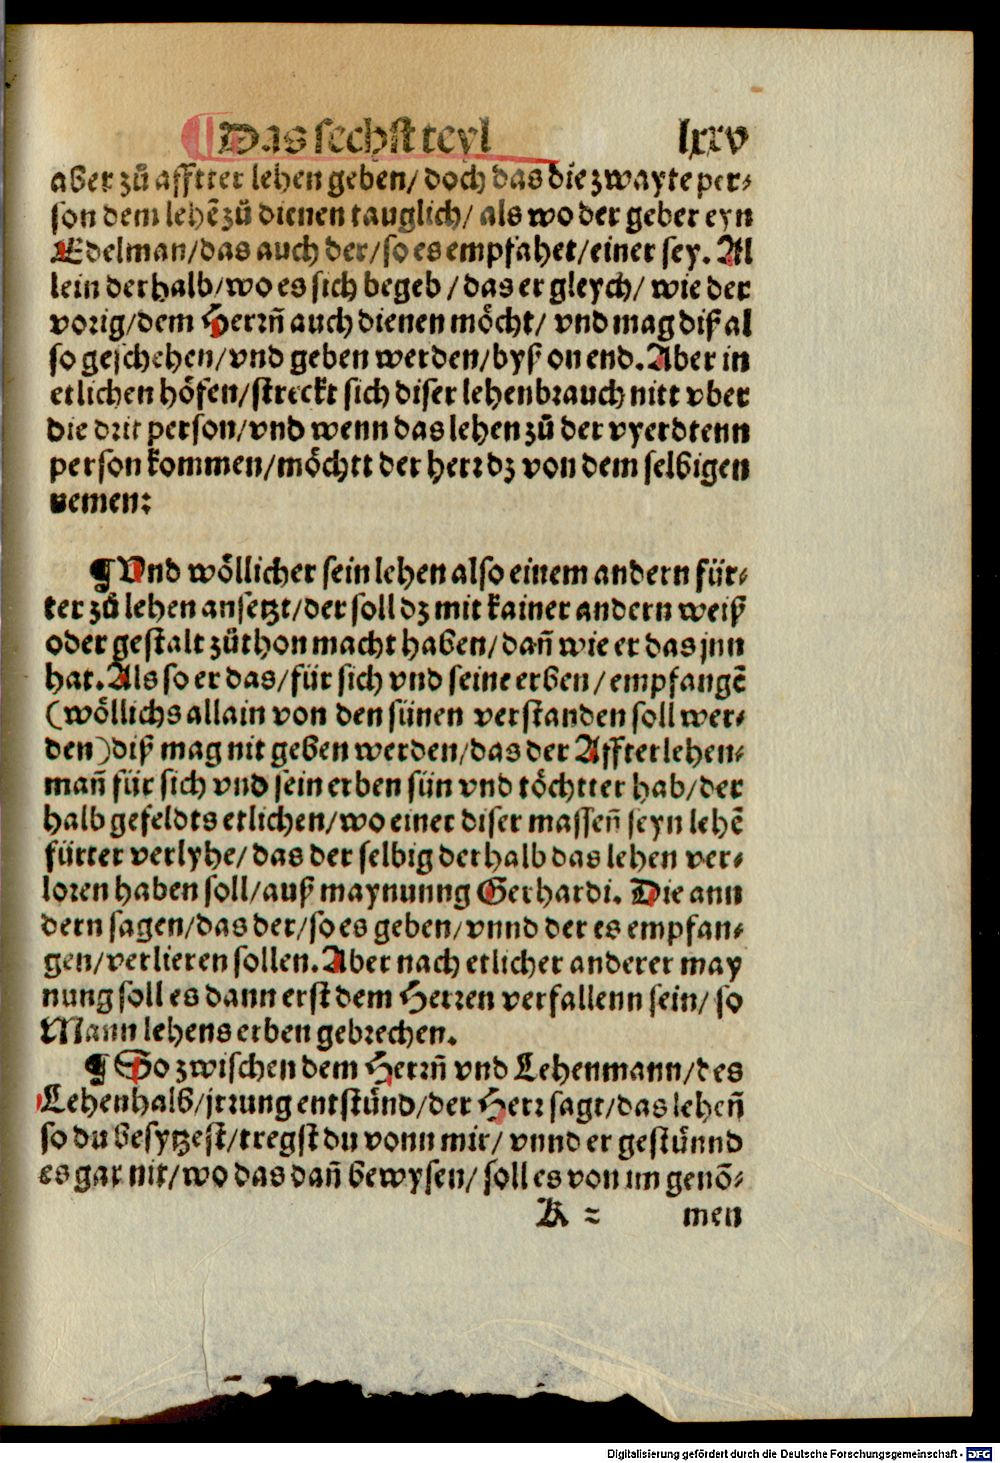 Das sechst teyl lxxv
aber zů affter lehen geben/ doch das die zwayte per⸗
son dem lehē zů dienen tauglich/ als wo der geber eyn
Edelman/das auch der/so es empfahet/einer sey. Al
lein derhalb/wo es sich begeb /das er gleych/ wie der
vorig/dem Herrn̄ auch dienen möcht/ vnd mag diß al
so geschehen/vnd geben werden/byß on end. Aber in
etlichen höfen/streckt sich diser lehenbrauch nitt vber
die drit person/vnd wenn das lehen zů der vyerdtenn
person kommen/möchtt der herr dz von dem selbigen
nemen:
¶ Vnd wöllicher sein lehen also einem andern für⸗
ter zů lehen ansetzt/der soll dz mit kainer andern weiß
oder gestalt zůthon macht haben/dan̄ wie er das jnn
hat. Als so er das/für sich vnd seine erben/empfangē
(wöllichs allain von den sünen verstanden soll wer⸗
den)diß mag nit geben werden/das der Affterlehen⸗
man̄ für sich vnd sein erben sün vnd töchtter hab/der
halb gefeldts etlichen/wo einer diser massen̄ seyn lehē
fürter verlyhe/das der selbig derhalb das lehen ver⸗
loren haben soll/auß maynunng Gerhardi. Die ann
dern sagen/das der/so es geben/vnnd der es empfan⸗
gen/verlieren sollen. Aber nach etlicher anderer may
nung soll es dann erst dem Herren verfallenn sein/ so
Mann lehens erben gebrechen.
¶ So zwischen dem Herrn̄ vnd Lehenmann/des
Lehenhalb/jrrung entstünd/der Herr sagt/das lehen̄
so du besytzest/tregst du vonn mir/ vnnd er gestünnd
es gar nit/wo das dan̄ bewysen/ soll es von im genō⸗
K = men
Digitalisierung gefördert durch die Deutsche Forschungsgemeinschaft - DFG